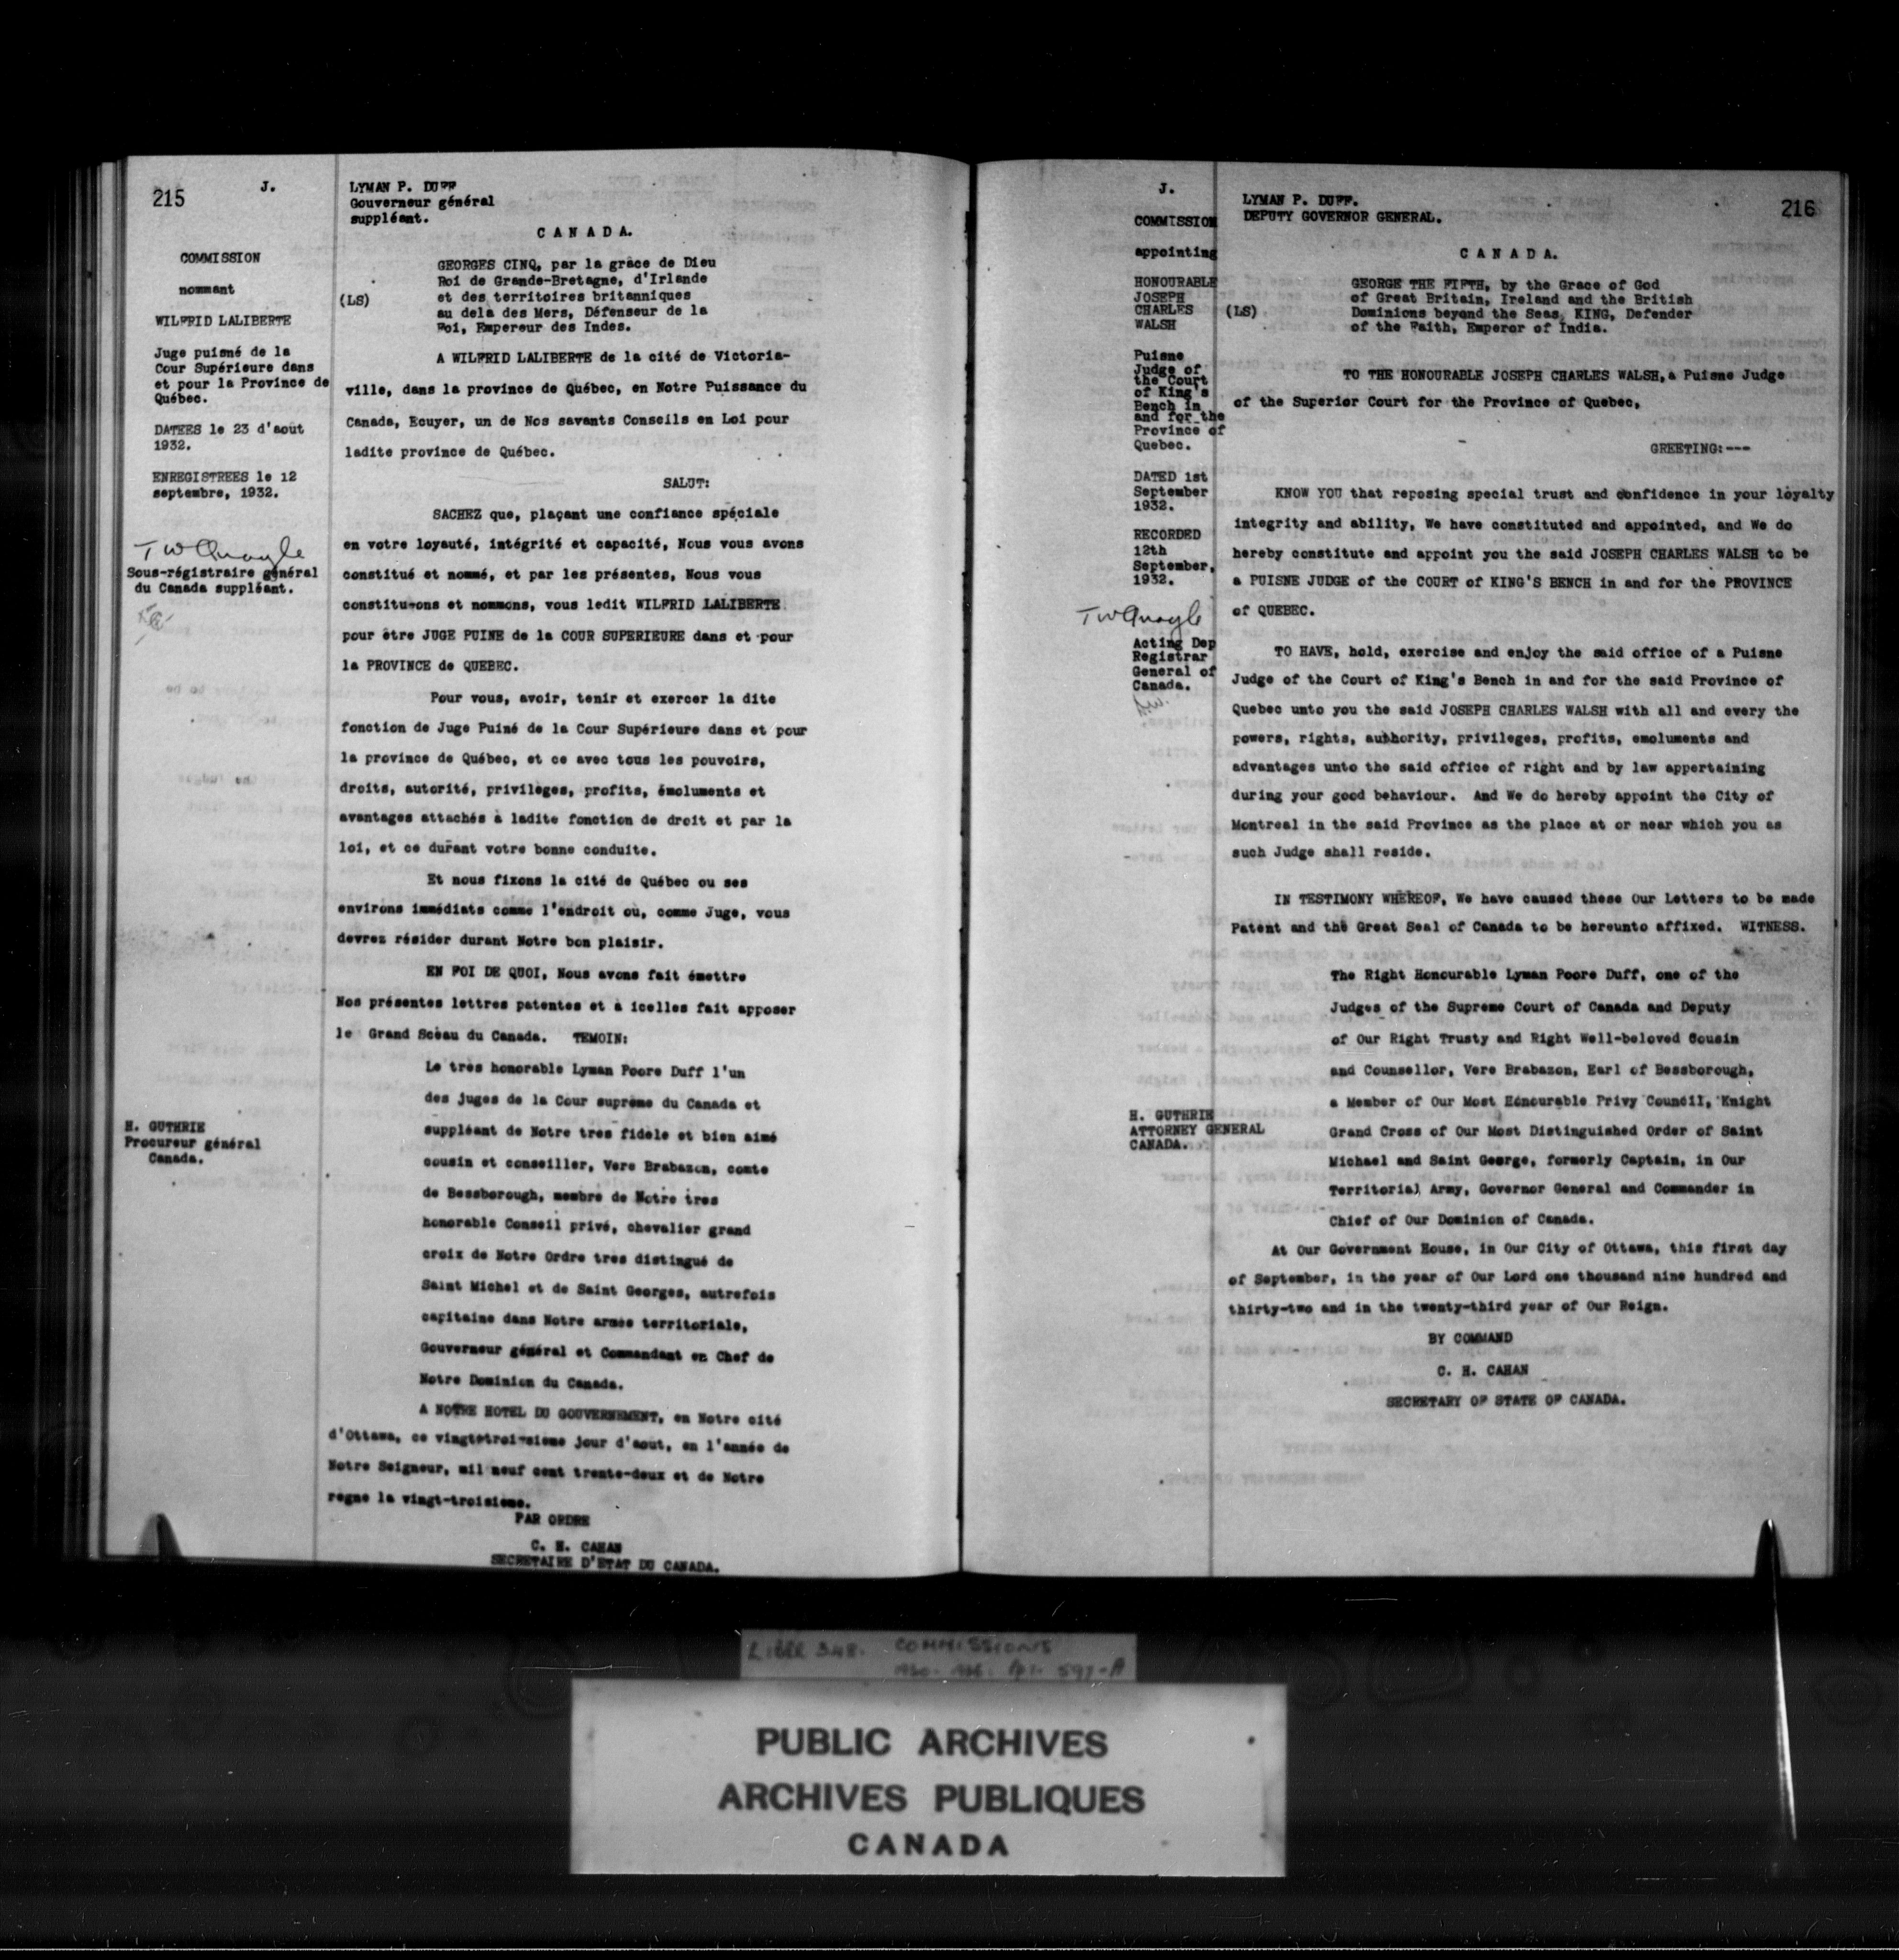 215
J.
COMMISSION
nommant
WILFRID LALIBERTE
Juge puisné de la
Cour Supérieure dans
et pour la Province de
Québec.
DATEES le 23 d'août
1932.
ENREGISTREES le 12
septembre, 1932.
TWQuayle
Sous-régistraire général
du Canada suppléant.
H. GUTHRIE
Procureur général
Canada.
LYMAN P. DUFF
Gouverneur général
suppléant.
CANADA.
(LS)
GEORGES CINQ, par la grâce de Dieu
Roi de Grande-Bretagne, d'Irlande
et des territoires britanniques
au delà des Mers, Défenseur de la
Foi, Empereur des Indes.
A WILFRID LALIBERTE de la cité de Victoria-
ville, dans la province de Québec, en Notre Puissance du
Canada, Ecuyer, un de Nos savants Conseils en Loi pour
ladite province de Québec.
SALUT:
SACHEZ que, plaçant une confiance spéciale
en votre loyauté, intégrité et capacité, Nous vous avons
constitué et nommé, et par les présentes, Nous vous
constituons et nommons, vous ledit WILFRID LALIBERTE
pour être JUGE PUINE de la COUR SUPERIEURE dans et pour
la PROVINCE de QUEBEC.
Pour vous, avoir, tenir et exercer la dite
fonction de Juge Puiné de la Cour Supérieure dans et pour
la province de Québec, et ce avec tous les pouvoirs,
droits, autorité, privilèges, profits, émoluments et
avantages attachés à ladite fonction de droit et par la
loi, et ce durant votre bonne conduite.
Et nous fixons la cité de Québec ou ses
environs immédiats comme l'endroit où, comme Juge, vous
devrez résider durant Notre bon plaisir.
EN FOI DE QUOI, Nous avons fait émettre
Nos présentes lettres patentes et à icelles fait apposer
le Grand Sceau du Canada. TEMOIN:
Le très honorable Lyman Poore Duff l'un
des juges de la Cour suprême du Canada et
suppléant de Notre très fidèle et bien aimé
cousin et conseiller, Vere Brabazon, comte
de Bessborough, membre de Notre très
honorable Conseil privé, chevalier grand
croix de Notre Ordre très distingué de
Saint Michel et de Saint Georges, autrefois
capitaine dans Notre armée territoriale,
Gouverneur général et Commandant en Chef de
Notre Dominion du Canada.
A NOTRE HOTEL DU GOUVERNEMENT, en Notre cité
d'Ottawa, ce vingt-troisième jour d'août, en l'année de
Notre Seigneur, mil neuf cent trente-deux et de Notre
règne la vingt-troisième.
PAR ORDRE
C. H. CAHAN
SECRETAIRE D'ETAT DU CANADA.
J.
216
COMMISSION
appointing
HONOURABLE
JOSEPH
CHARLES
WALSH
Puisne
Judge of
the Court
of King's
Bench in
and for the
Province of
Quebec.
DATED 1st
September
1932.
RECORDED
12th
September,
1932.
TWQuayle
Acting Dep
Registrar
General of
Canada.
H. GUTHRIE
ATTORNEY GENERAL
CANADA.
LYMAN P. DUFF.
DEPUTY GOVERNOR GENERAL.
CANADA.
(LS)
GEORGE THE FIFTH, by the Grace of God
of Great Britain, Ireland and the British
Dominions beyond the Seas, KING, Defender
of the Faith, Emperor of India.
TO THE HONOURABLE JOSEPH CHARLES WALSH, a Puisne Judge
of the Superior Court for the Province of Quebec,
GREETING:---
KNOW YOU that reposing special trust and confidence in your loyalty
integrity and ability, We have constituted and appointed, and We do
hereby constitute and appoint you the said JOSEPH CHARLES WALSH to be
a PUISNE JUDGE of the COURT of KING'S BENCH in and for the PROVINCE
of QUEBEC.
TO HAVE, hold, exercise and enjoy the said office of a Puisne
Judge of the Court of King's Bench in and for the said Province of
Quebec unto you the said JOSEPH CHARLES WALSH with all and every the
powers, rights, authority, privileges, profits, emoluments and
advantages unto the said office of right and by law appertaining
during your good behaviour. And We do hereby appoint the City of
Montreal in the said Province as the place at or near which you as
such Judge shall reside.
IN TESTIMONY WHEREOF, We have caused these Our Letters to be made
Patent and the Great Seal of Canada to be hereunto affixed. WITNESS.
The Right Honourable Lyman Poore Duff, one of the
Judges of the Supreme Court of Canada and Deputy
of Our Right Trusty and Right Well-beloved Cousin
and Counsellor, Vere Brabazon, Earl of Bessborough,
a Member of Our Most Honourable Privy Council, Knight
Grand Cross of Our Most Distinguished Order of Saint
Michael and Saint George, formerly Captain, in Our
Territorial Army, Governor General and Commander in
Chief of Our Dominion of Canada.
At Our Government House, in Our City of Ottawa, this first day
of September, in the year of Our Lord one thousand nine hundred and
thirty-two and in the twenty-third year of Our Reign.
BY COMMAND
C. H. CAHAN
SECRETARY OF STATE OF CANADA.
LIBER 348. COMMISSIONS
PUBLIC ARCHIVES
ARCHIVES PUBLIQUES
CANADA